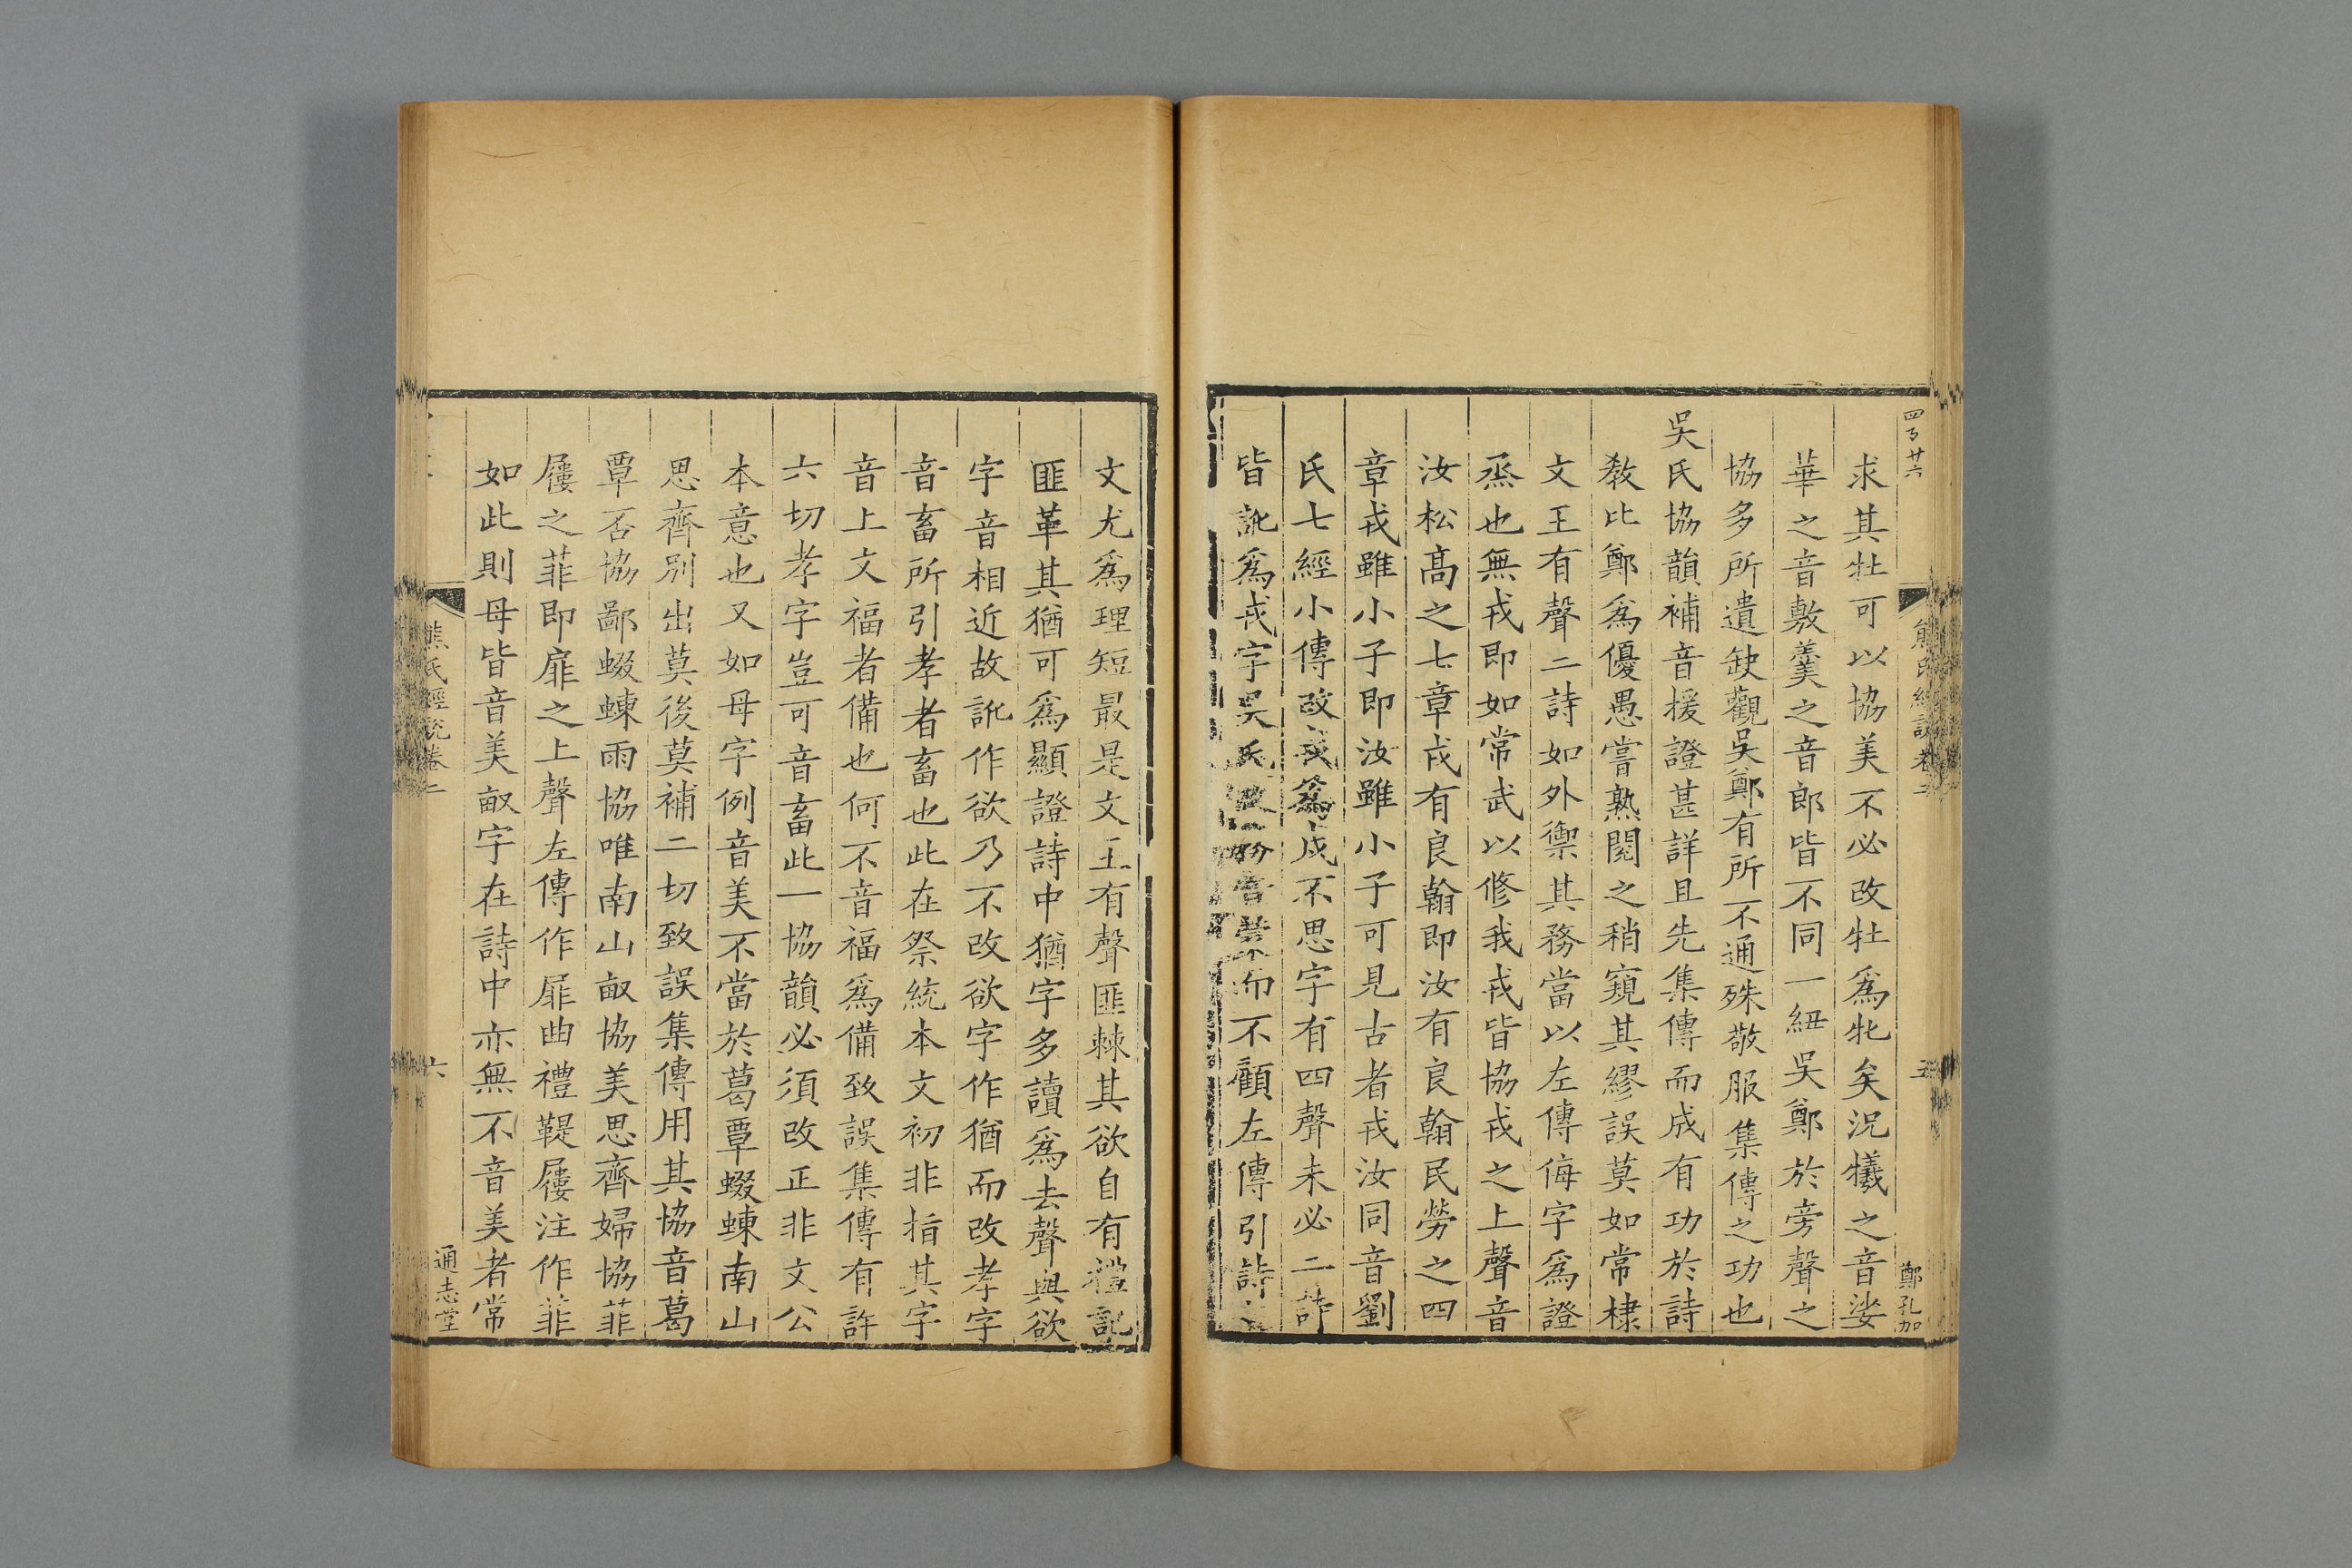 四百廿六
熊氏經說卷二
五
鄭孔加
求其牡可以協美不必改牡爲牝矣況犧之音娑
華之音敷羹之音郎皆不同一紐吳鄭於旁聲之
協多所遺缺觀吳鄭有所不通殊敬服集傳之功也
吳氏協韻補音援證甚詳且先集傳而成有功於詩
敎比鄭爲優愚嘗熟閱之稍窺其繆誤莫如常棣
文王有聲二詩如外禦其務當以左傳侮字爲證
烝也無戎即如常武以修我戎皆協戎之上聲音
汝松高之七章戎有良翰即汝有良翰民勞之四
章戎雖小子即汝雖小子可見古者戎汝同音劉
氏七經小傳改戎爲戍不思字有四聲未必二詩
皆訛爲戎字吳氏而不顧左傳引詩
文尤爲理短最是文王有聲匪棘其欲自有禮記
匪革其猶可爲顯證詩中猶字多讀爲去聲與欲
字音相近故訛作欲乃不改欲字作猶而改孝字
音畜所引孝者畜也此在祭統本文初非指其字
音上文福者備也何不音福爲備致誤集傳有許
六切孝字豈可音畜此一協韻必須改正非文公
本意也又如母字例音美不當於葛覃蝃蝀南山
思齊別出莫後莫補二切致誤集傳用其協音葛
覃否協鄙蝃蝀雨協唯南山畝協美思齊婦協菲
屨之菲即扉之上聲左傳作扉曲禮鞮屨注作菲
如此則母皆音美畝字在詩中亦無不音美者常
熊氏經說卷二
六
通志堂